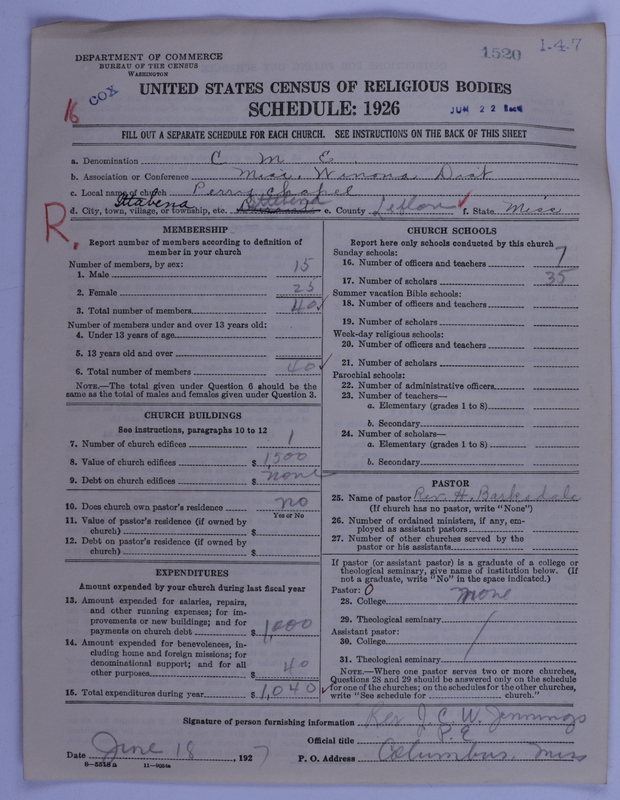 DEPARTMENT OF COMMERCE
BUREAU OF THE CENSUS
WASHINGTON
1520
1-4-7
16
COX
UNITED STATES CENSUS OF RELIGIOUS BODIES
SCHEDULE: 1926
JUN 22
FILL OUT A SEPARATE SCHEDULE FOR EACH CHURCH. SEE INSTRUCTIONS ON THE BACK OF THIS SHEET
a. Denomination C M E.
b. Association or Conference Miss. Winona Dist
c. Local name of church Perry Chapel
Ittabena
d. City, town, village, or township, etc. Ittabena e. County Leflore f. State Miss
R.
MEMBERSHIP
Report number of members according to definition of member in your church
Number of members, by sex:
1. Male 15
2. Female 25
3. Total number of members 40
Number of members under and over 13 years old:
4. Under 13 years of age
5. 13 years old and over
6. Total number of members 40
NOTE.—The total given under Question 6 should be the
same as the total of males and females given under Question 3.
CHURCH BUILDINGS
See instructions, paragraphs 10 to 12
7. Number of church edifices 1
8. Value of church edifices $ 1,500
9. Debt on church edifices $ none
10. Does church own pastor's residence no
Yes or No
11. Value of pastor's residence (if owned by
church) $
12. Debt on pastor's residence (if owned by
church) $
EXPENDITURES
Amount expended by your church during last fiscal year
13. Amount expended for salaries, repairs,
and other running expenses; for im-
provements or new buildings; and for
payments on church debt $ 1,000
14. Amount expended for benevolences, in-
cluding home and foreign missions; for
denominational support; and for all
other purposes $ 40
15. Total expenditures during year $ 1,040
CHURCH SCHOOLS
Report here only schools conducted by this church
Sunday schools:
16. Number of officers and teachers 7
17. Number of scholars 35
Summer vacation Bible schools:
18. Number of officers and teachers
19. Number of scholars
Week-day religious schools:
20. Number of officers and teachers
21. Number of scholars
Parochial schools:
22. Number of administrative officers
23. Number of teachers—
a. Elementary (grades 1 to 8)
b. Secondary
24. Number of scholars—
a. Elementary (grades 1 to 8)
b. Secondary
PASTOR
25. Name of pastor Rev. H. Barksdale
(If church has no pastor, write "None")
26. Number of ordained ministers, if any, em-
ployed as assistant pastors
27. Number of other churches served by the
pastor or his assistants
If pastor (or assistant pastor) is a graduate of a college or
theological seminary, give name of institution below. (If
not a graduate, write "No" in the space indicated.)
Pastor: 0
28. College none
29. Theological seminary
Assistant pastor:
30. College
31. Theological seminary
NOTE.—Where one pastor serves two or more churches,
Questions 28 and 29 should be answered only on the schedule
for one of the churches; on the schedules for the other churches,
write "See schedule for church."
Signature of person furnishing information Rev J. C. W. Jennings
Official title P. E
Date June 18, 1927 P. O. Address Columbus, Miss
8-5518a 11-9034a